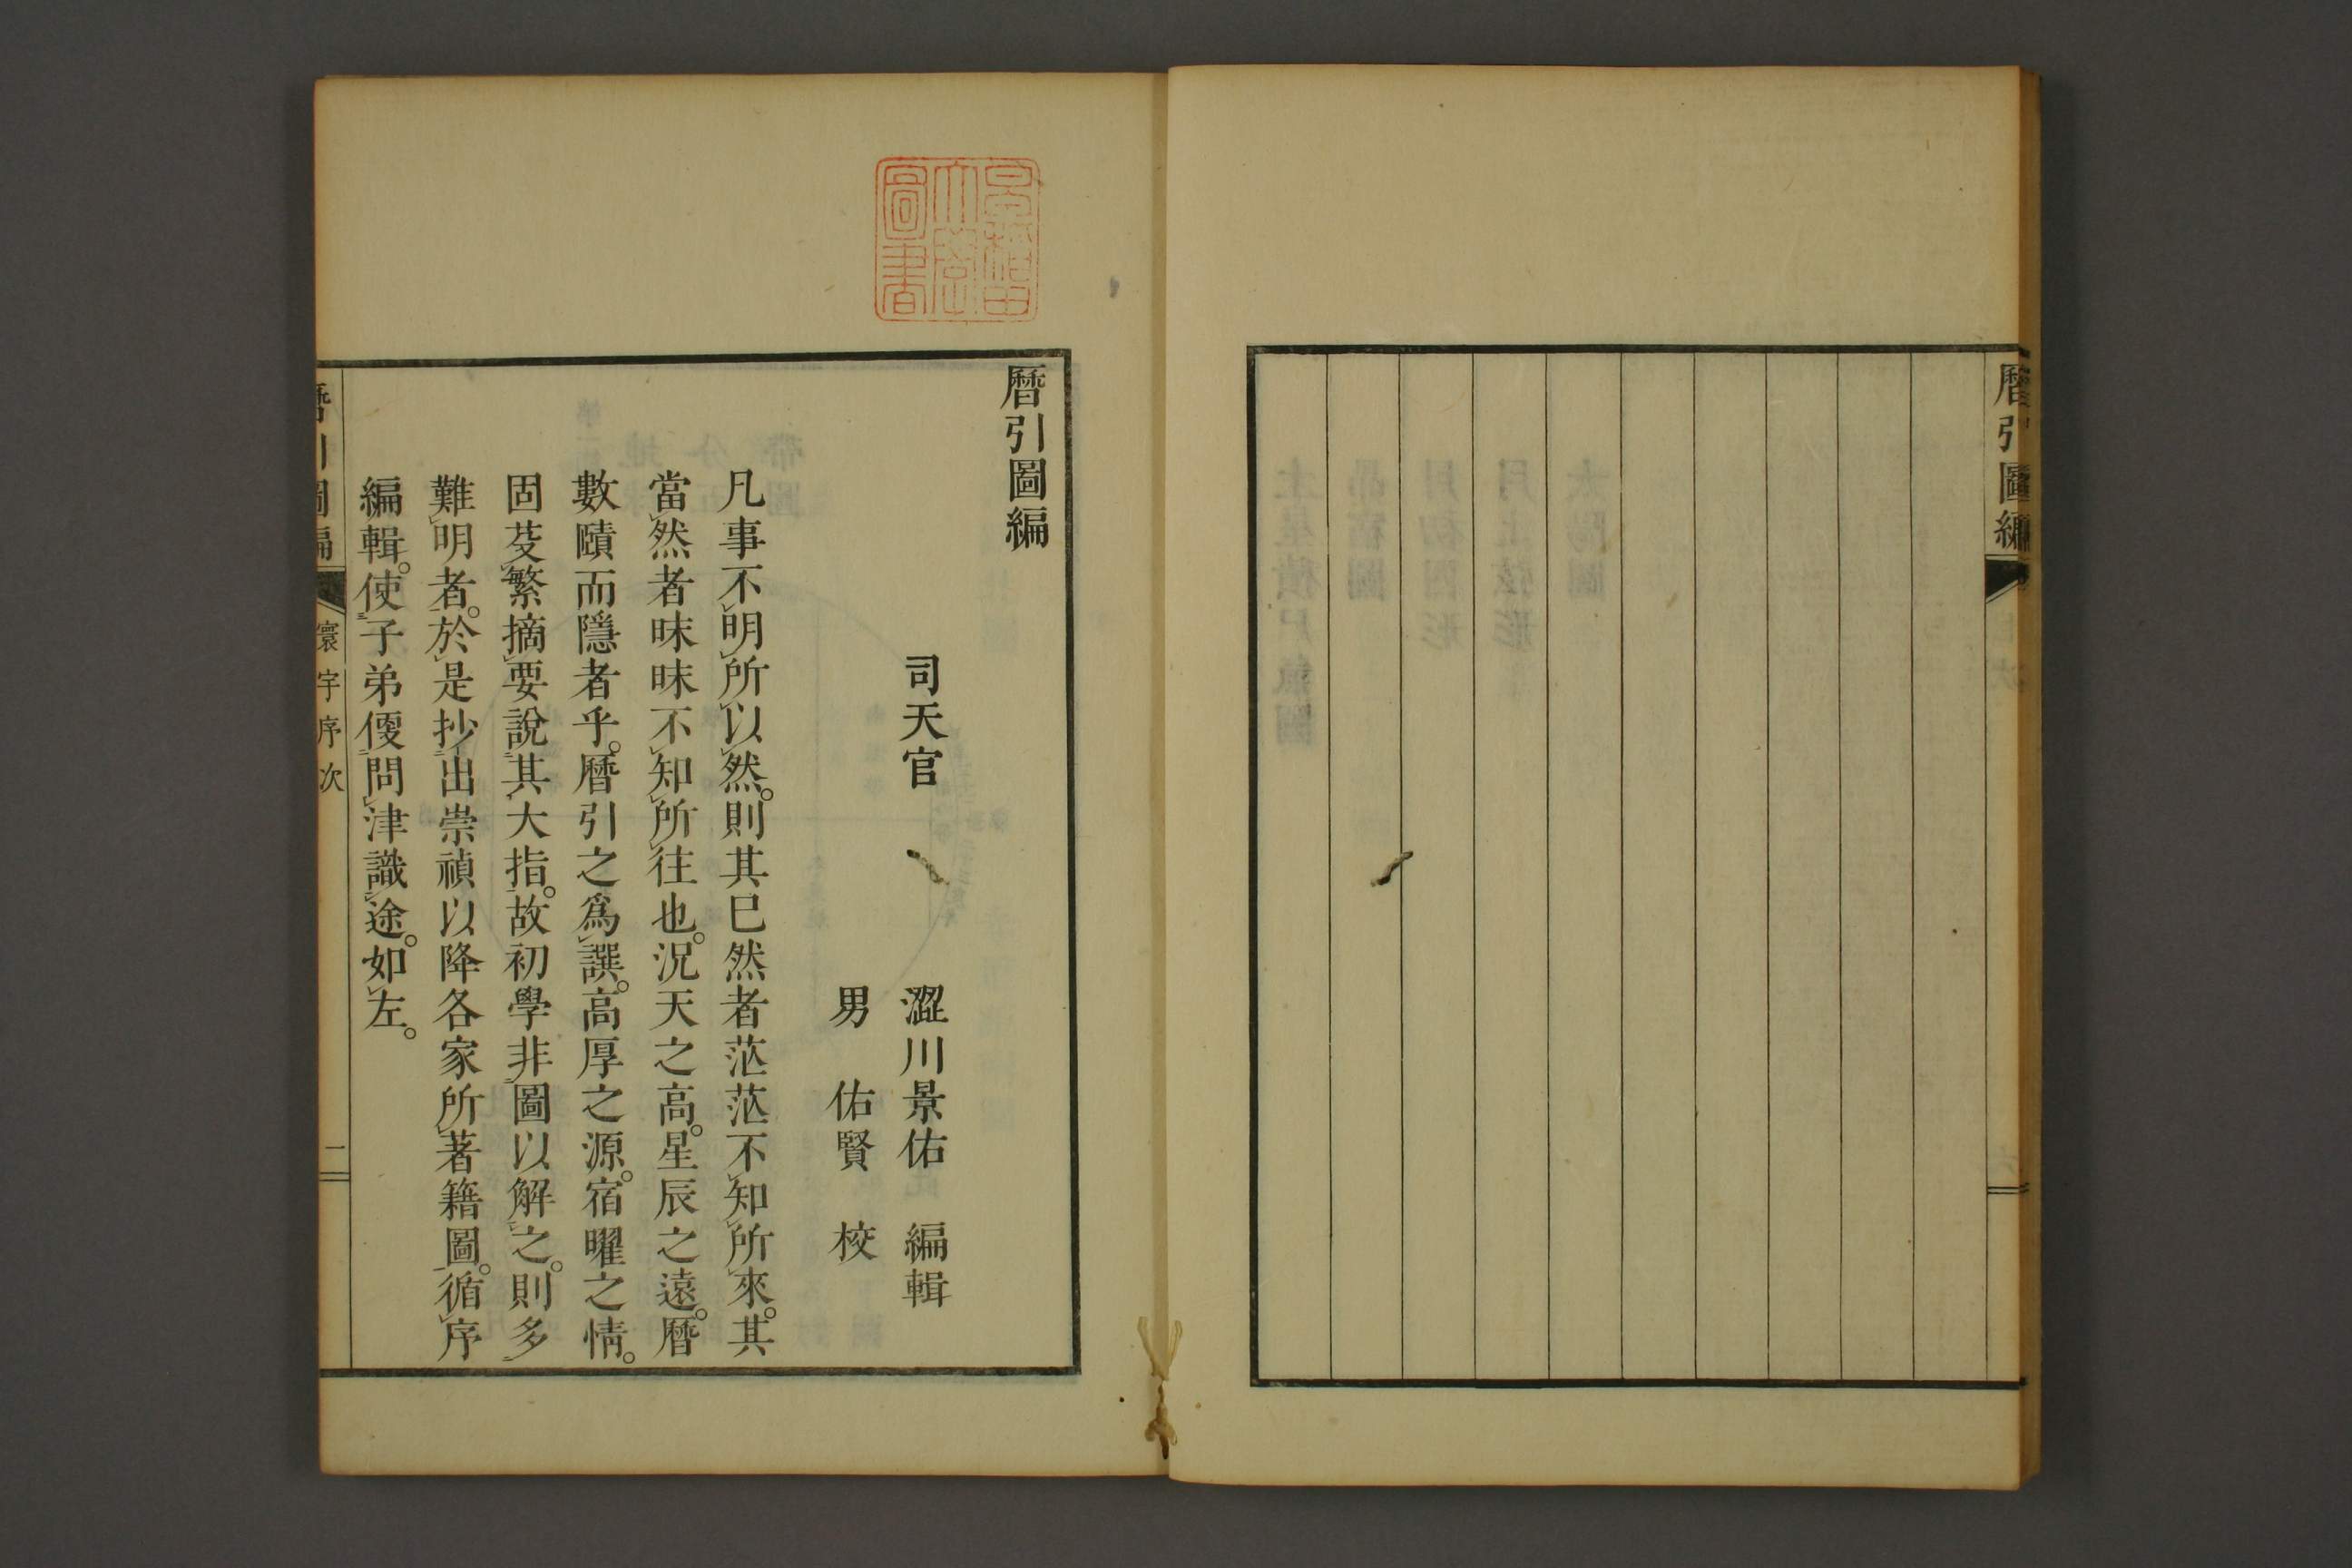 曆引圖編
曆引圖編
司天官　澀川景佑　編輯
男　佑賢　校
凡事不明所以然。則其已然者茫茫不知所來。其
當然者昧昧不知所往也。況天之高。星辰之遠。曆
數賾而隱者乎。曆引之爲譔。高厚之源。宿曜之情。
固芟繁摘要說其大指。故初學非圖以解之。則多
難明者。於是抄出崇禎以降各家所著籍圖。循序
編輯。使子弟便問津識途。如左。
曆引圖編
寰宇序次
二